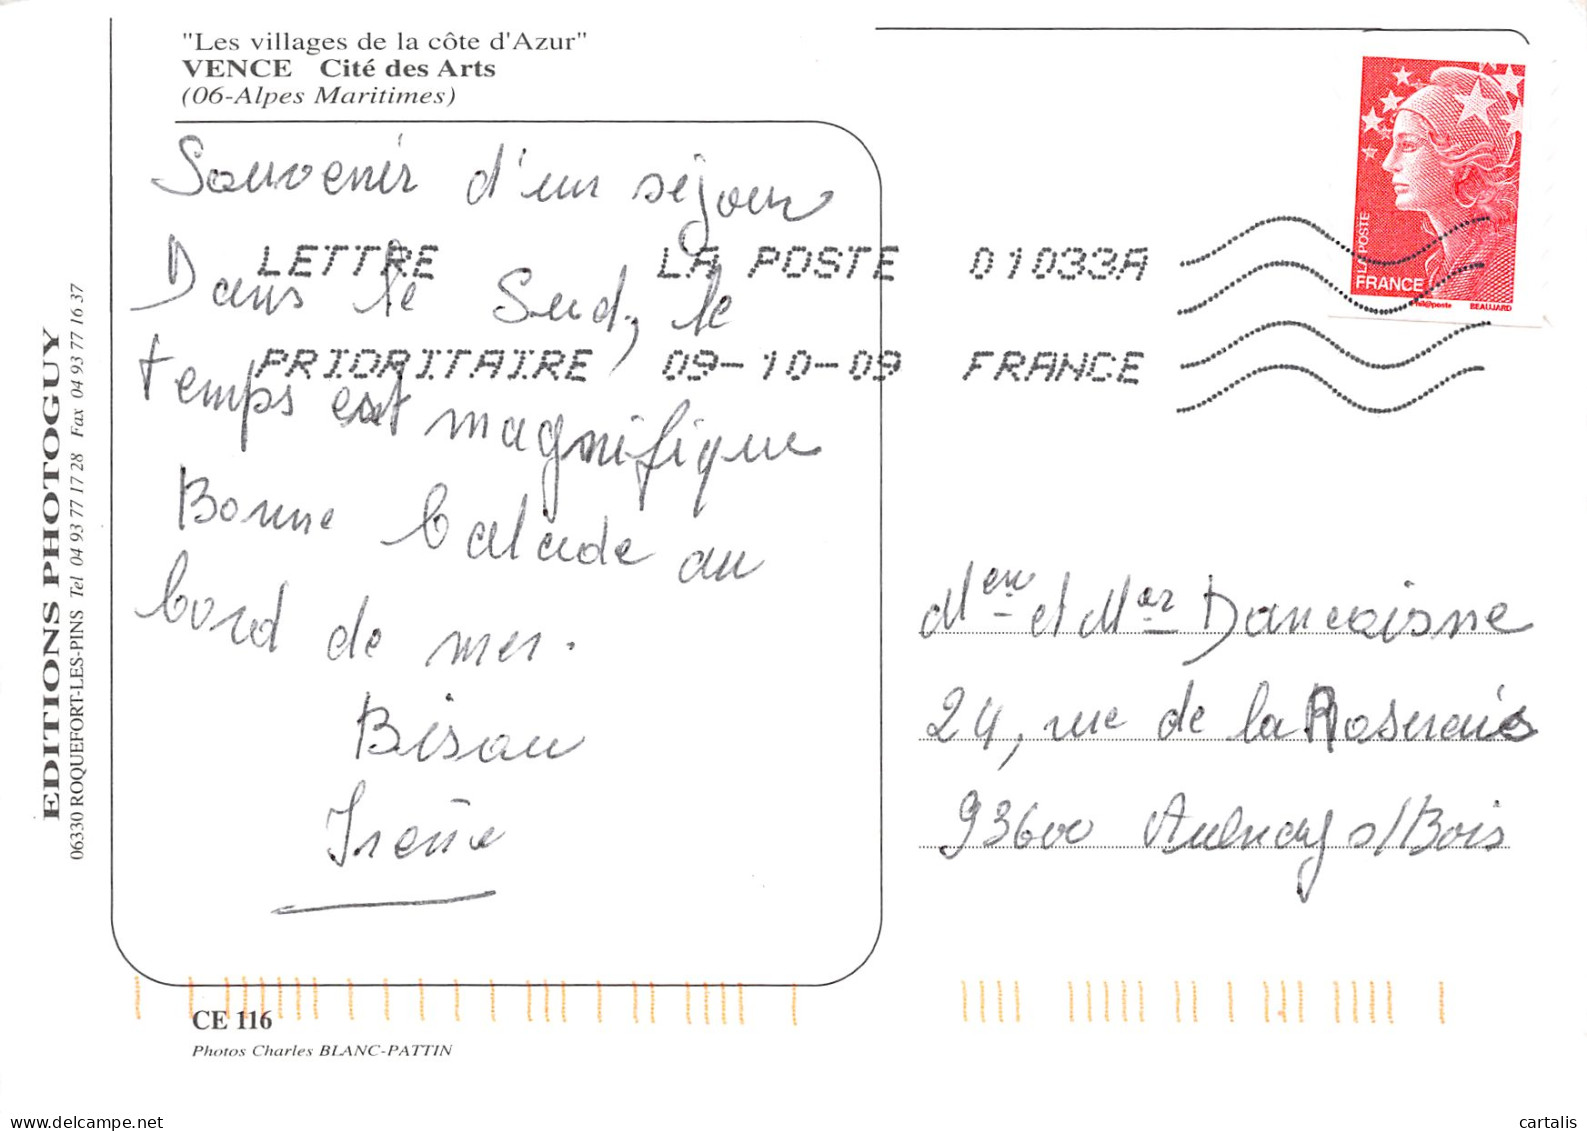 "Les villages de la côte d'Azur"
VENCE Cité des Arts
(06-Alpes Maritimes)
Souvenir d'un séjour
Dans le Sud, le
temps est magnifique
Bonne balade au
bord de mer.
Bisou
Irène
LETTRE LA POSTE 01033A
PRIORITAIRE 09-10-09 FRANCE
LA POSTE
FRANCE
BEAUJARD
et Dancoisne
24, rue de la Roseraie
93600 Aulnay s/Bois
EDITIONS PHOTOGUY
06330 ROQUEFORT-LES-PINS Tel 04 93 77 17 28 Fax 04 93 77 16 37
CE 116
Photos Charles BLANC-PATTIN
delcampe.net
cartalis